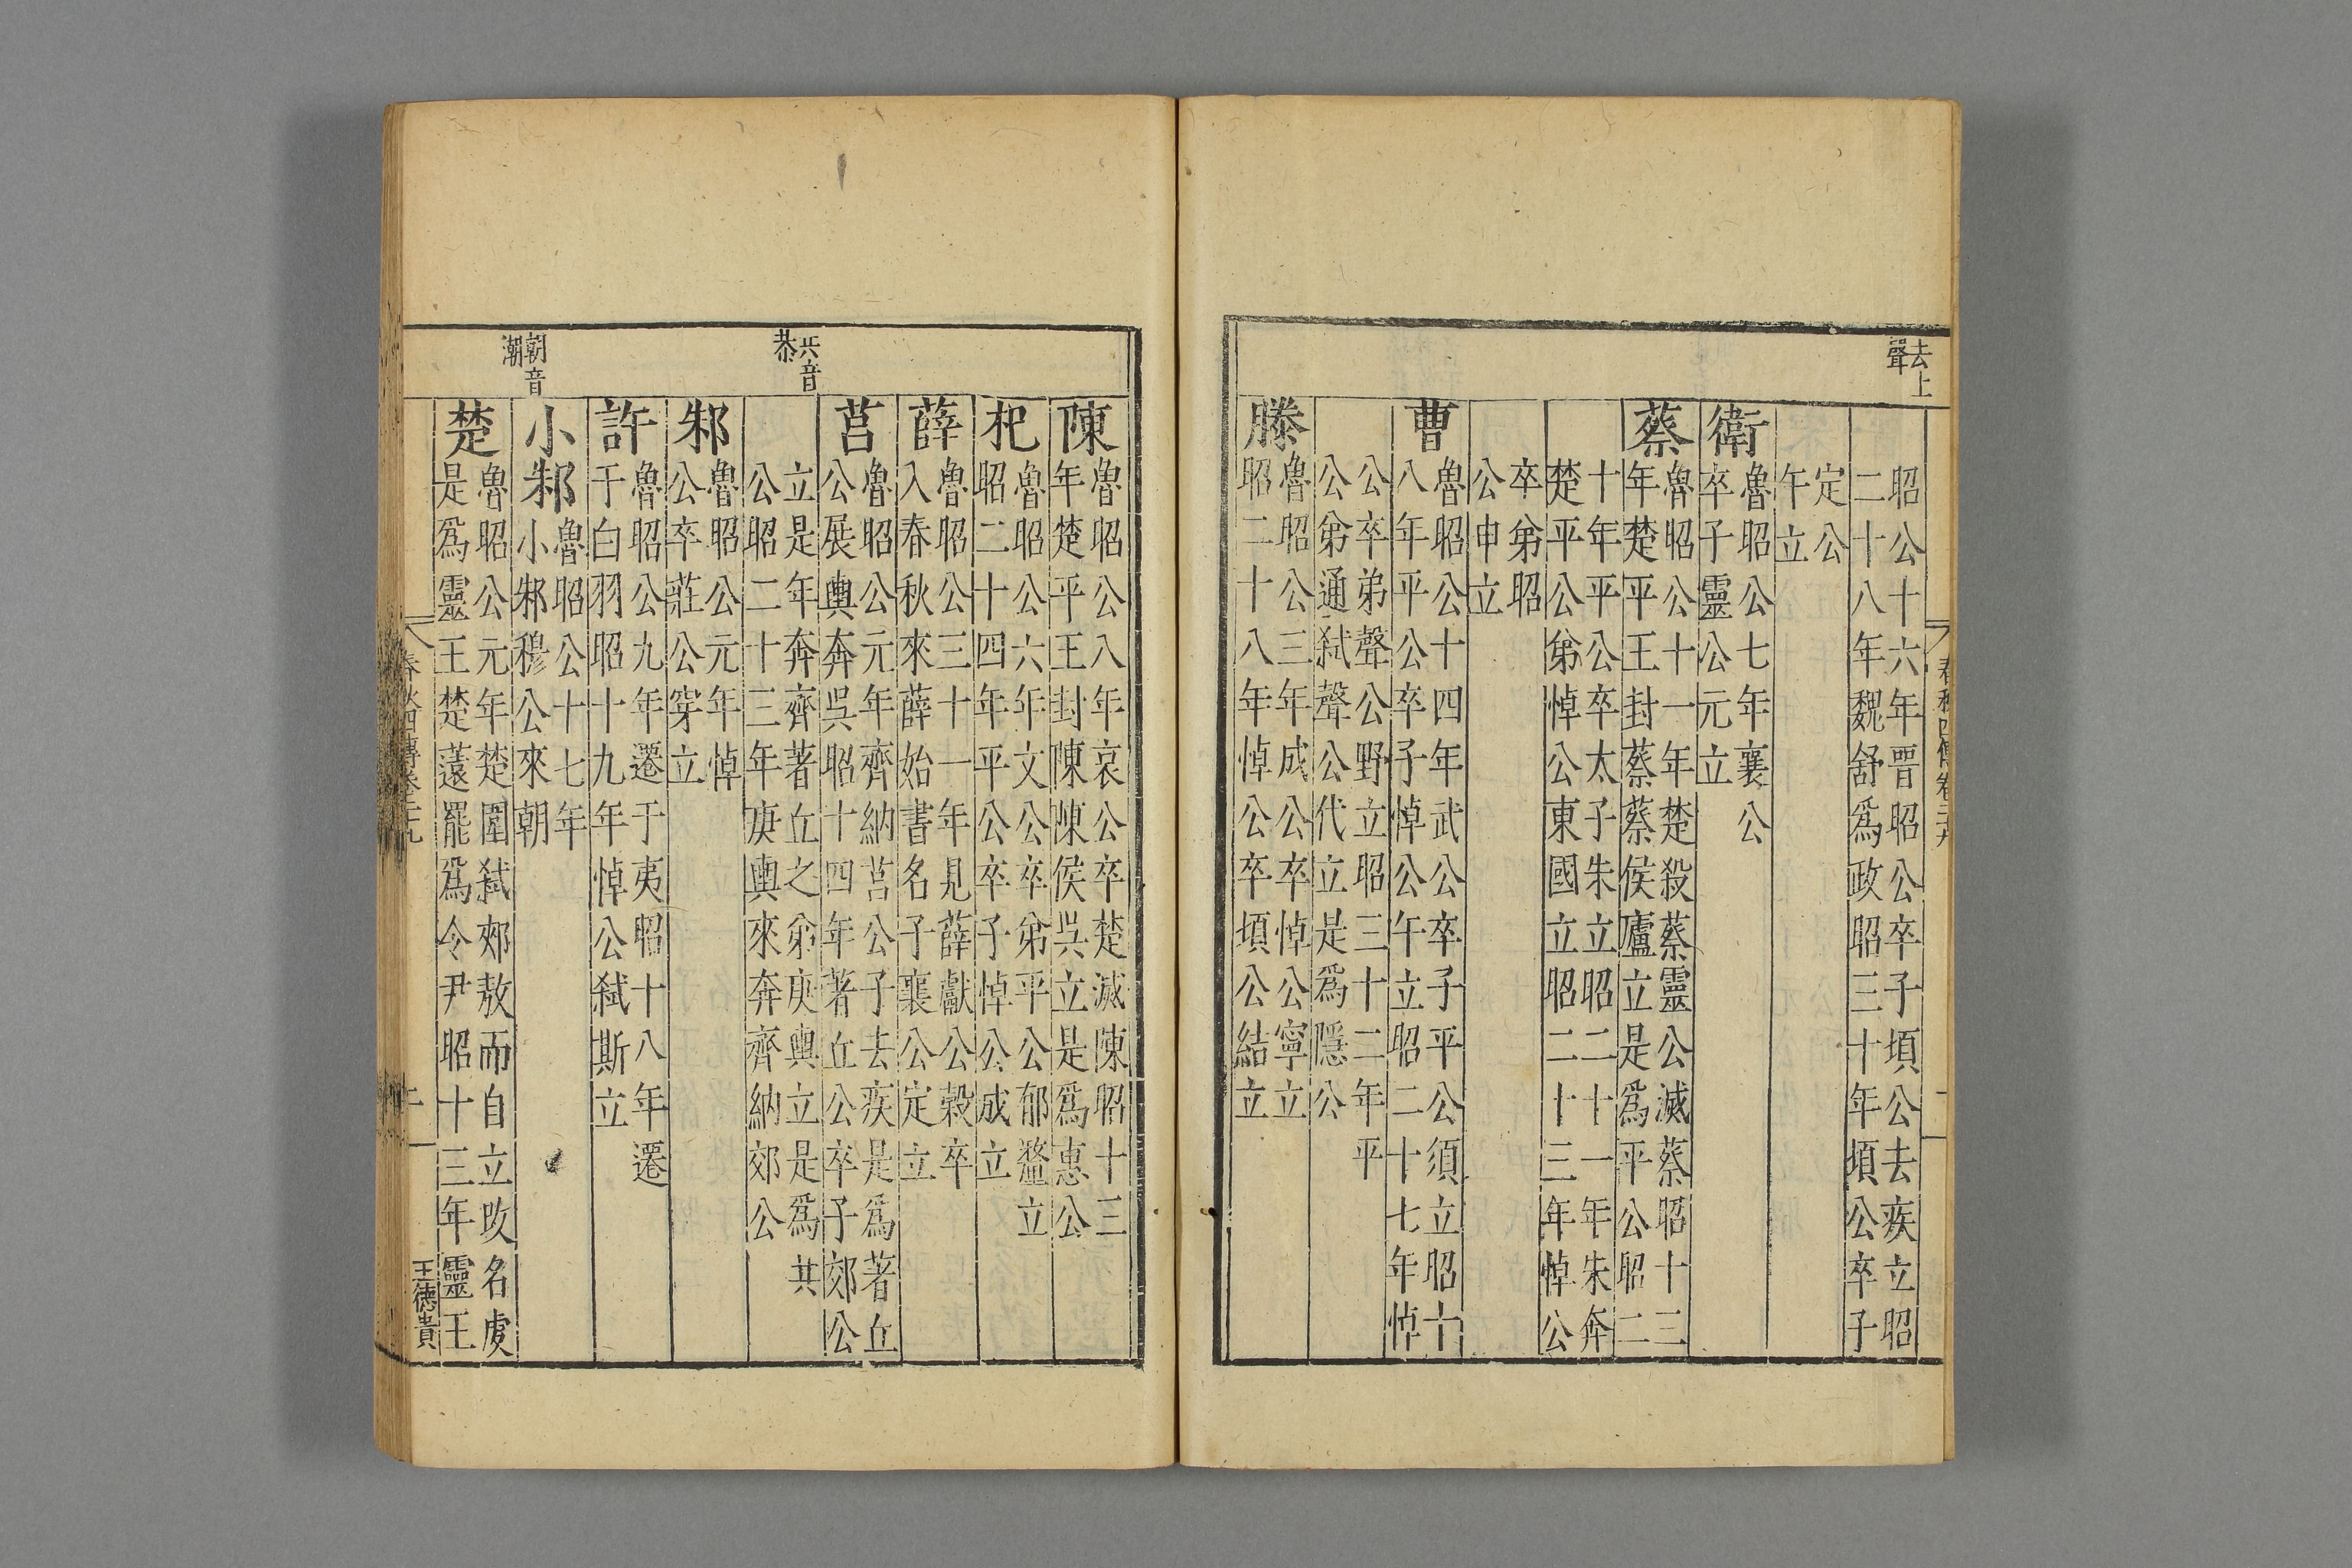 去上
聲
昭公十六年晋昭公卒子頃公去疾立昭
二十八年魏舒爲政昭三十年頃公卒子
定公
午立
衛
魯昭公七年襄公
卒子靈公元立
蔡
魯昭公十一年楚殺蔡靈公滅蔡昭十三
年楚平王封蔡蔡侯廬立是爲平公昭二
十年平公卒太子朱立昭二十一年朱奔
楚平公弟悼公東國立昭二十三年悼公
卒弟昭
公申立
曹
魯昭公十四年武公卒子平公須立昭十
八年平公卒子悼公午立昭二十七年悼
公卒弟聲公野立昭三十二年平
公弟通弑聲公代立是爲隱公
滕
魯昭公三年成公卒悼公寧立
昭二十八年悼公卒頃公結立
春秋四傳卷二十九
陳
魯昭公八年哀公卒楚滅陳昭十三
年楚平王封陳陳侯吳立是爲惠公
杞
魯昭公六年文公卒弟平公郁釐立
昭二十四年平公卒子悼公成立
薛
魯昭公三十一年見薛獻公穀卒
入春秋來薛始書名子襄公定立
莒
魯昭公元年齊納莒公子去疾是爲著丘
公展輿奔吳昭十四年著丘公卒子郊公
共音
恭
立是年奔齊著丘之弟庚輿立是爲共
公昭二十三年庚輿來奔齊納郊公
邾
魯昭公元年悼
公卒莊公穿立
許
魯昭公九年遷于夷昭十八年遷
于白羽昭十九年悼公弑斯立
朝音
潮
小邾
魯昭公十七年
小邾穆公來朝
楚
魯昭公元年楚圍弑郟敖而自立改名虔
是爲靈王楚薳罷爲令尹昭十三年靈王
王德貴